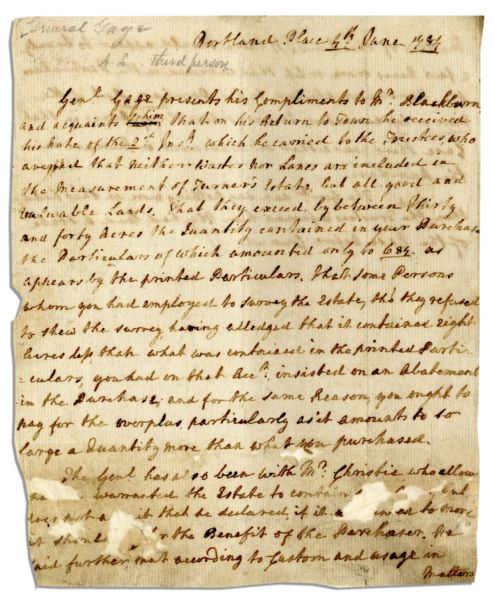 General Gage
A L third person
Portland Place 4th June 1784
Genl Gage presents his Compliments to Mr. Blackburn
and acquaints him that on his Return to Town he received
his Note of the 2d Inst. which he carried to the Trustees who
averred that neither Wastes nor Lanes are included in
the Measurement of Turner's Estate, but all good and
valuable Lands. That they exceed by between thirty
and forty Acres the Quantity contained in your Purchase
the Particulars of which amounted only to 684. as
appears by the printed Particulars. That some Persons
whom you had employed to survey the Estate, tho' they refused
to shew the survey, having alledged that it contained eight
Acres less than what was contained in the printed Parti-
=culars, you had on that Acct. insisted on an Abatement
in the Purchase; and for the same Reason, you ought to
pay for the overplus particularly as it amounts to so
large a Quantity more than what you purchased.
The Genl has also been with Mr. Christie who allow
warranted the Estate to contain
not it that he declared if it to more
it the Benefit of the Purchaser. He
said further, that according to Custom and usage in
Matters